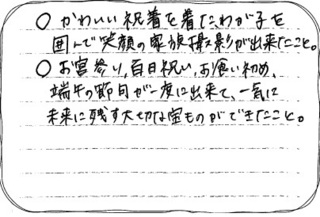 ○ かわいい祝着を着たわが子を
囲んで笑顔の家族撮影が出来たこと。
○ お宮参り、百日祝い、お食い初め、
端午の節句が一度に出来て、一気に
未来に残す大切な宝ものができたこと。